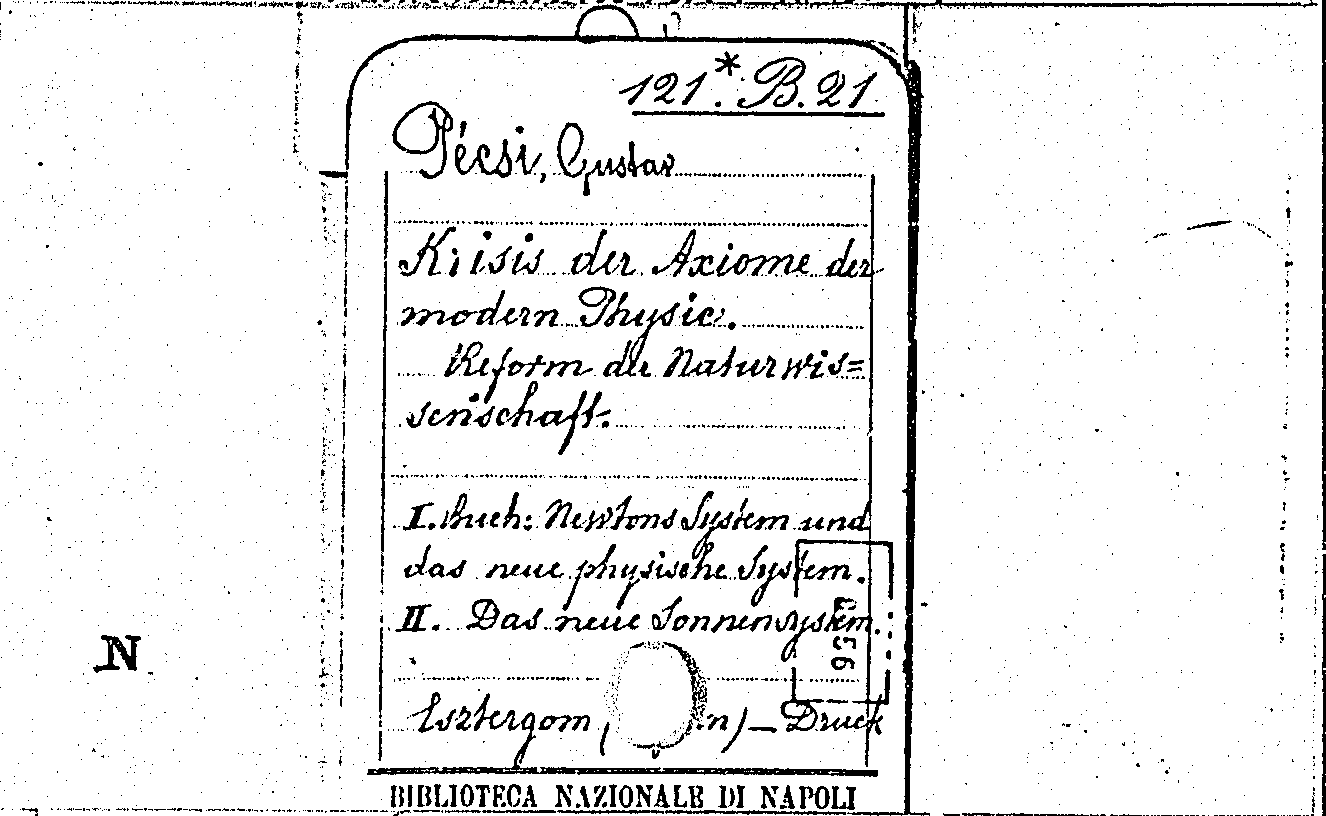 121*. B. 21
Pécsi, Gustav
Krisis der Axiome der
modern Physic.
Reform der Naturwis=
senschaft.
I. Buch: Newtons System und
das neue physische System.
II. Das neue Sonnensystem.
Esztergom, ( n) – Druck
BIBLIOTECA NAZIONALE DI NAPOLI
N